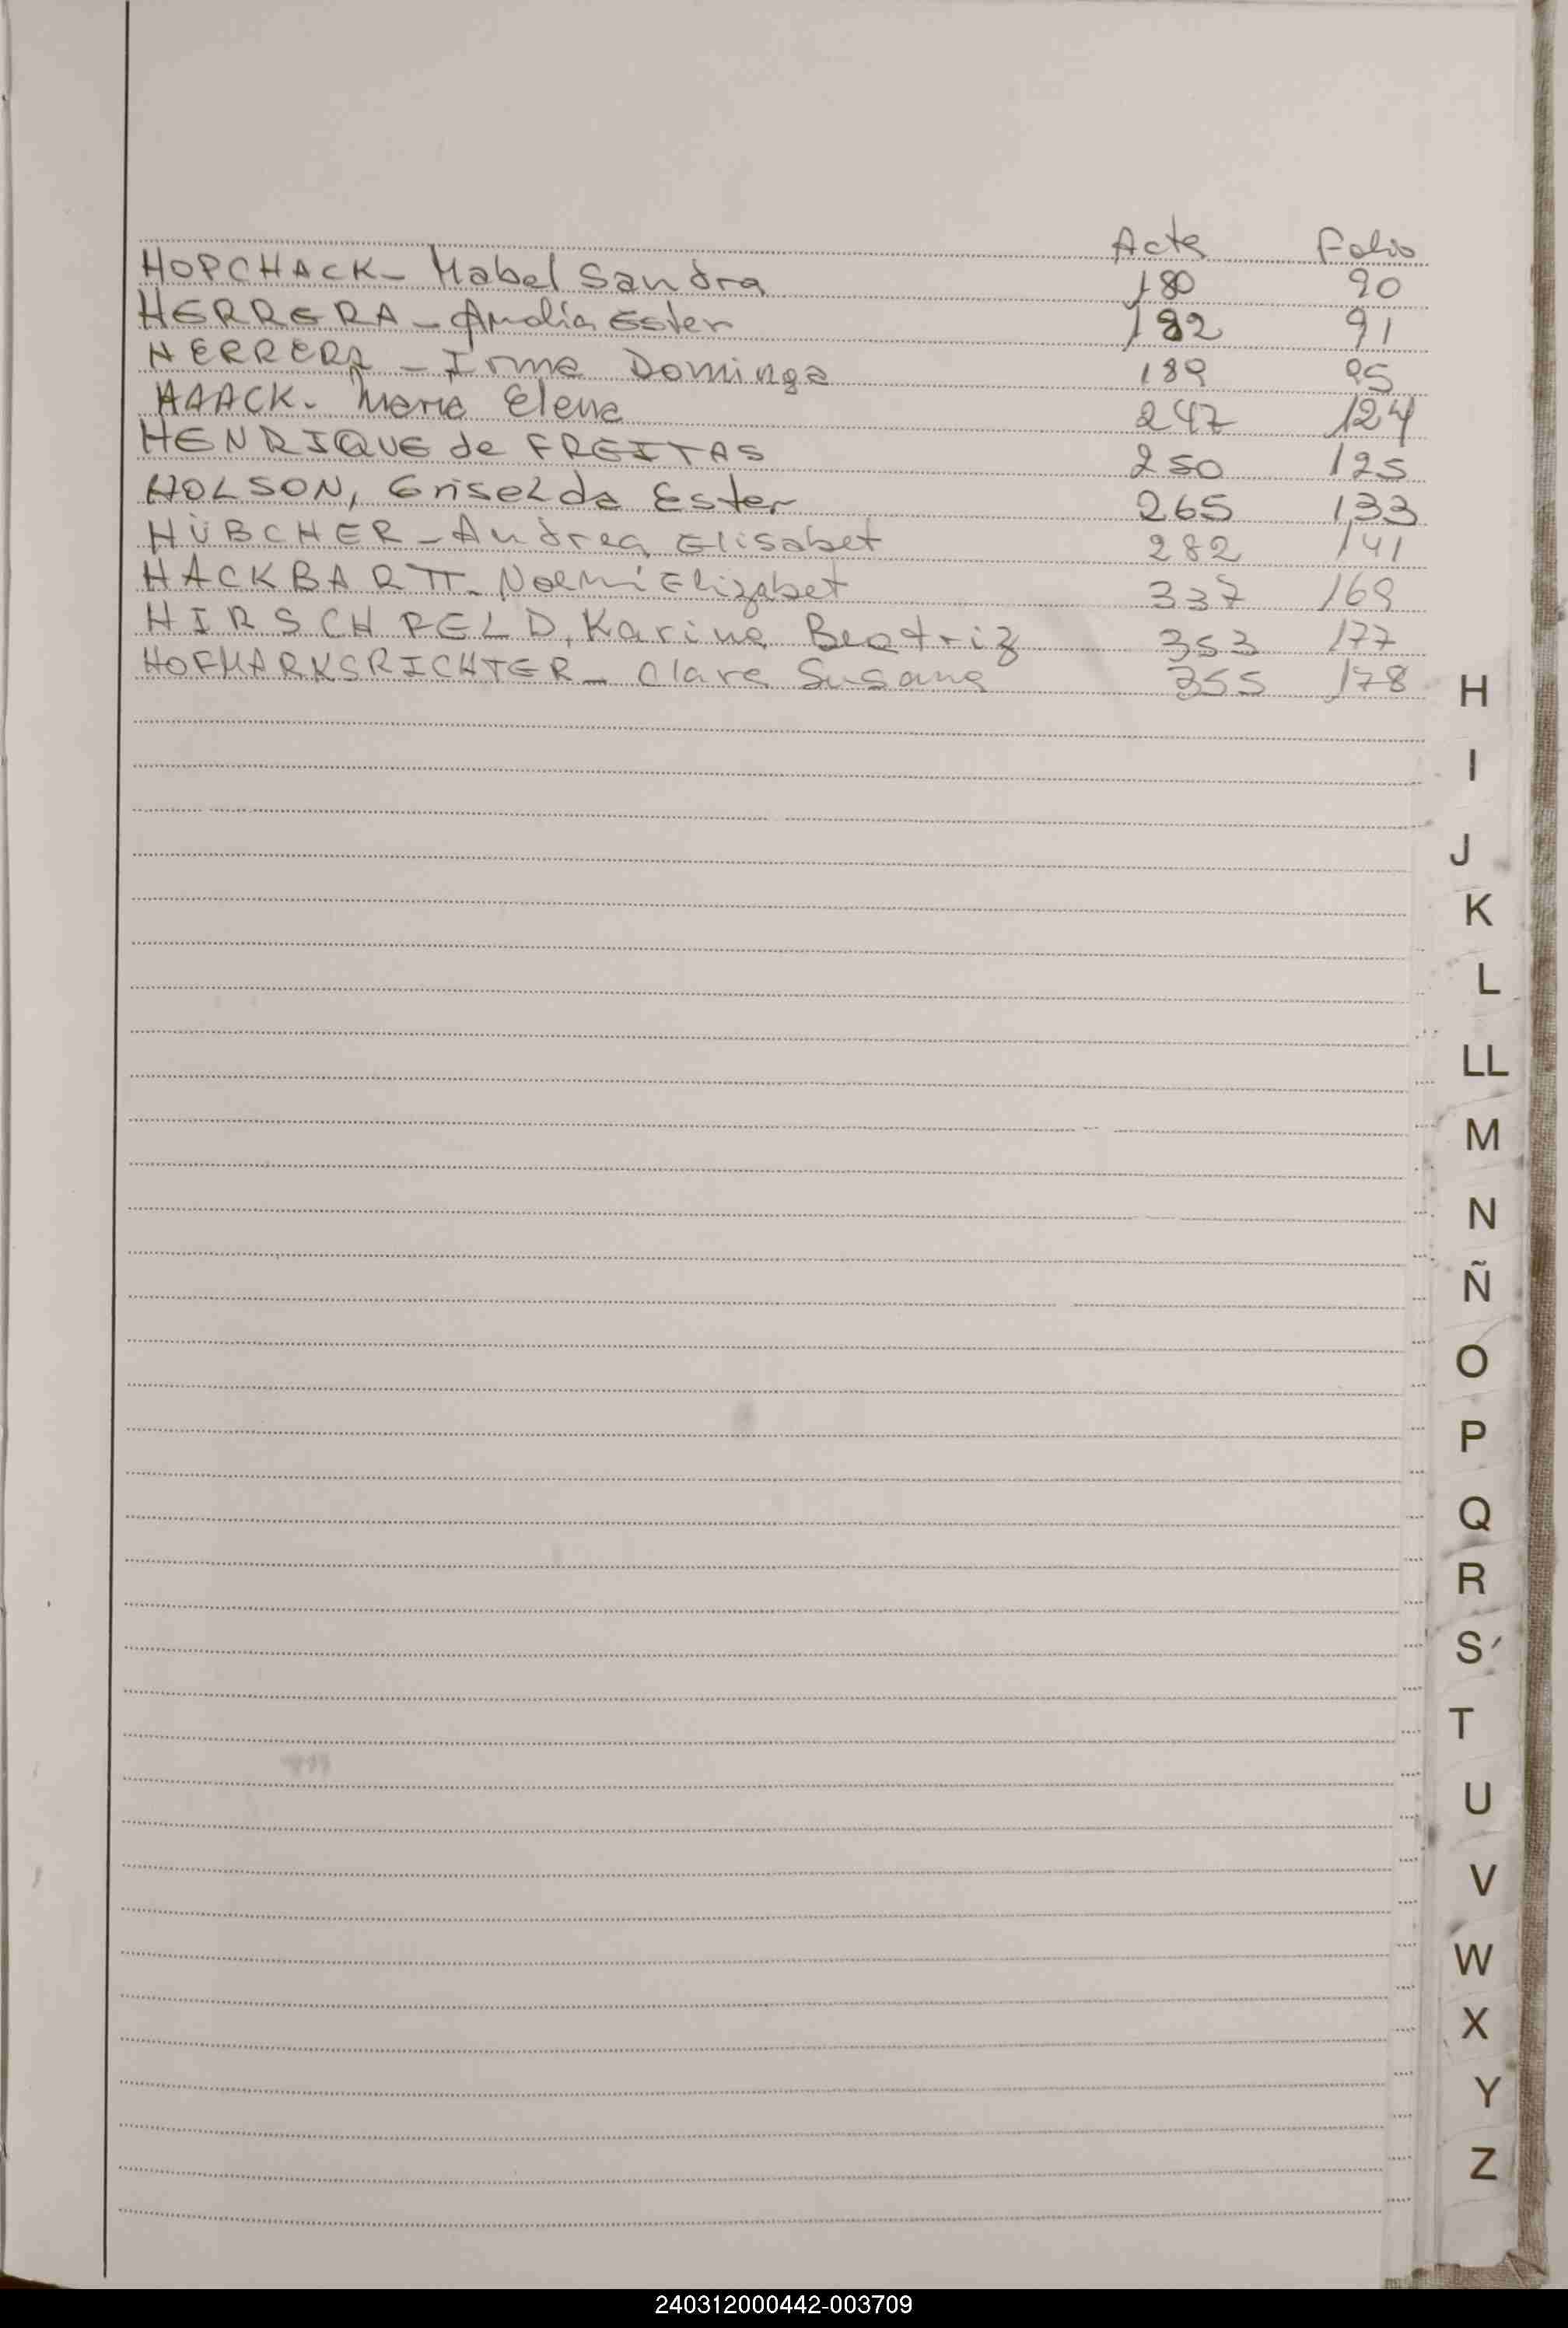 Acta Folio
HOPCHACK - Mabel Sandra 180 90
HERRERA - Amalia Ester 182 91
HERRERA - Irma Dominga 189 95
HAACK. Maria Elena 247 124
HENRIQUE de FREITAS 250 125
HOLSON, Griselda Ester 265 133
HÜBCHER - Andrea Elisabet 282 141
HACKBARTT - Noemí Elizabet 337 169
HIRSCHFELD, Karina Beatriz 353 177
HOFMARKSRICHTER - Clara Susana 355 178
H
I
J
K
L
LL
M
N
Ñ
O
P
Q
R
S
T
U
V
W
X
Y
Z
240312000442-003709